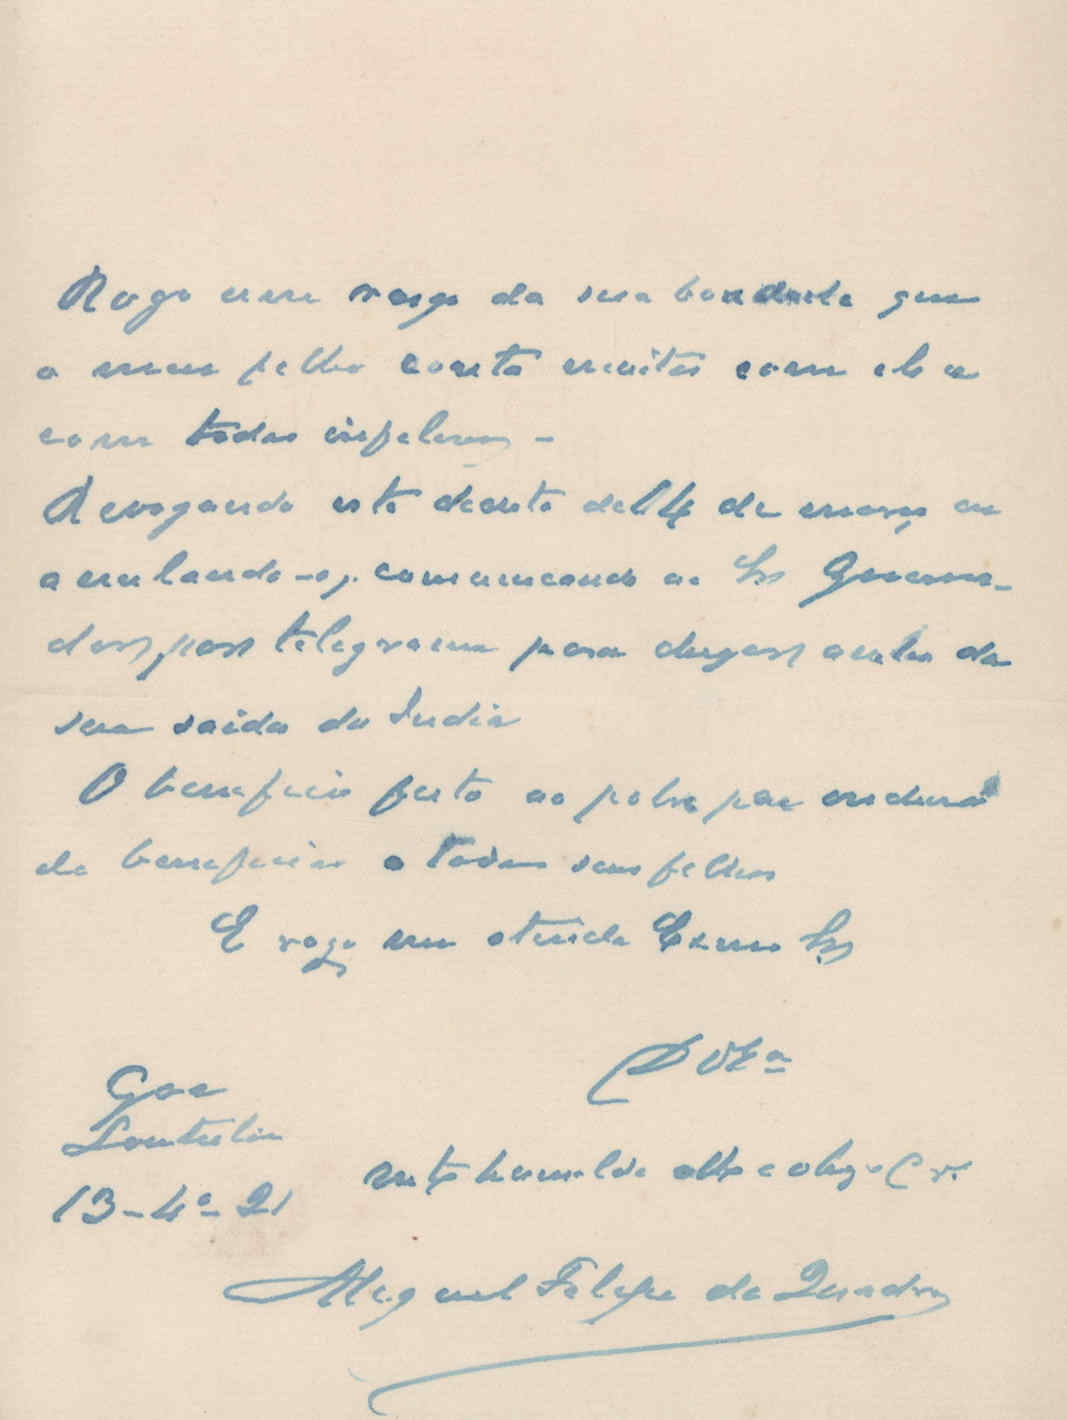 Rogo um rasgo da sua bondade que
o meu filho conta muitas com ella
com todos infelizes -
Revogando este decreto de 14 de março ou
anulando-o, comunicando ao Sr Governa-
dor, por telegrama para chegar antes da
sua saida da India
O beneficio feito ao pobre pae
de beneficio a todos seus filhos
E rogo me atenda Exmo Sr
D V Exª
Goa
Loutulim
mto humilde attº e obrgº Cr.
13-4º-21
Miguel Filipe de Quadros